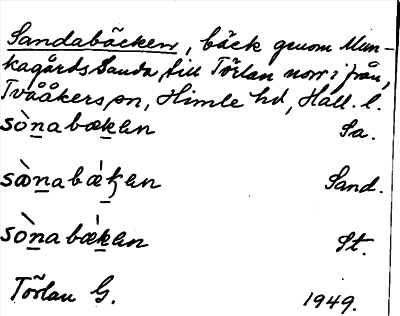 Sandabäcken, bäck genom Mun-
kagårds Sanda, till Törlan norrifrån,
Tvååkers sn, Himle hd, Hall. l.
sò̤nabækən Sa.
sæ̀nabǽkən Sand.
sònabækən St.
Törlan G. 1949.